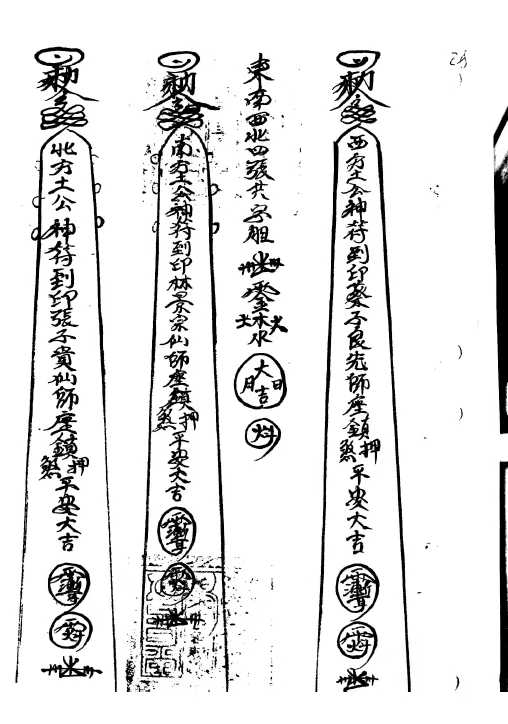 勅令
西方土公神符到印蔡子良先師座鎮押煞平安大吉
東南西北四張共字胆
木火土水
大吉
日月
勅令
南方土公神符到印林景宗仙師座鎮押煞平安大吉
勅令
北方土公神符到印張子貴仙師座鎮押煞平安大吉